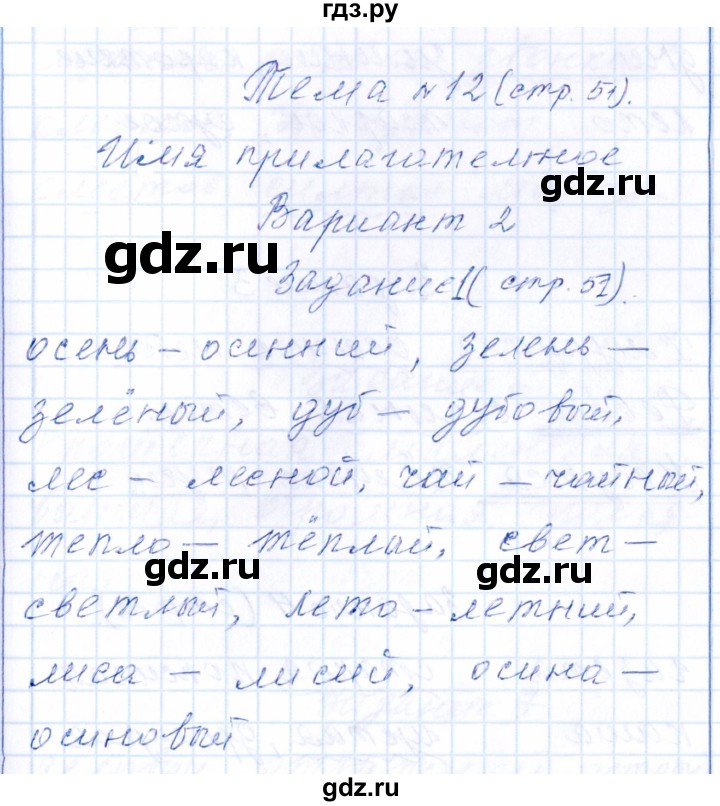 гдз.ру
Тема №12 (стр. 51).
Имя прилагательное
gdz.ru
Вариант 2
gdz.ru
Задание 1 (стр. 51).
осень – осенний, зелень –
зелёный, дуб – дубовый,
gdz.ru
gdz.ru
лес – лесной, чай – чайный,
тепло – тёплый, свет –
gdz.ru
gdz.ru
светлый, лето – летний,
лиса – лисий, осина –
осиновый
gdz.ru
gdz.ru